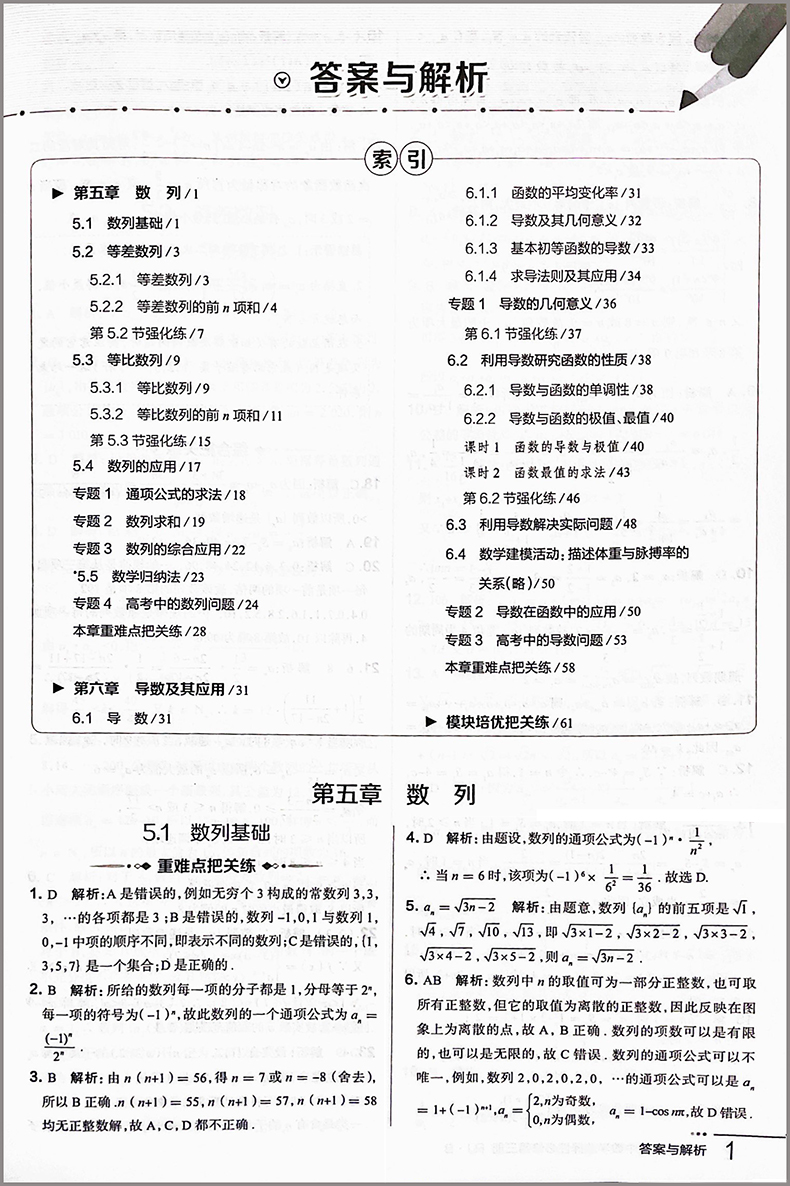 答案与解析
索引
▶ 第五章 数 列/1
5.1 数列基础/1
5.2 等差数列/3
5.2.1 等差数列/3
5.2.2 等差数列的前n项和/4
第5.2节强化练/7
5.3 等比数列/9
5.3.1 等比数列/9
5.3.2 等比数列的前n项和/11
第5.3节强化练/15
5.4 数列的应用/17
专题1 通项公式的求法/18
专题2 数列求和/19
专题3 数列的综合应用/22
*5.5 数学归纳法/23
专题4 高考中的数列问题/24
本章重难点把关练/28
▶ 第六章 导数及其应用/31
6.1 导 数/31
6.1.1 函数的平均变化率/31
6.1.2 导数及其几何意义/32
6.1.3 基本初等函数的导数/33
6.1.4 求导法则及其应用/34
专题1 导数的几何意义/36
第6.1节强化练/37
6.2 利用导数研究函数的性质/38
6.2.1 导数与函数的单调性/38
6.2.2 导数与函数的极值、最值/40
课时1 函数的导数与极值/40
课时2 函数最值的求法/43
第6.2节强化练/46
6.3 利用导数解决实际问题/48
6.4 数学建模活动:描述体重与脉搏率的
关系(略)/50
专题2 导数在函数中的应用/50
专题3 高考中的导数问题/53
本章重难点把关练/58
▶ 模块培优把关练/61
第五章 数 列
5.1 数列基础
重难点把关练
1. D 解析:A是错误的,例如无穷个3构成的常数列3,3,
3, …的各项都是3;B是错误的,数列-1,0,1与数列1,
0,-1中项的顺序不同,即表示不同的数列;C是错误的,{1,
3,5,7}是一个集合;D是正确的.
2. B 解析:所给的数列每一项的分子都是1,分母等于2ⁿ,
每一项的符号为(-1)ⁿ,故此数列的一个通项公式为aₙ=
(-1)ⁿ/2ⁿ
3. B 解析:由n(n+1)=56,得n=7或n=-8(舍去),
所以B正确.n(n+1)=55,n(n+1)=57,n(n+1)=58
均无正整数解,故A,C,D都不正确.
4. D 解析:由题设,数列的通项公式为(-1)ⁿ·1/n²,
∴当n=6时,该项为(-1)⁶×1/6²=1/36.故选D.
5. aₙ=√(3n-2) 解析:由题意,数列{aₙ}的前五项是√1,
√4,√7,√10,√13,即√(3×1-2),√(3×2-2),√(3×3-2),
√(3×4-2),√(3×5-2),则aₙ=√(3n-2).
6. AB 解析:数列中n的取值可为一部分正整数,也可取
所有正整数,但它的取值为离散的正整数,因此反映在图
象上为离散的点,故A,B正确.数列的项数可以是有限
的,也可以是无限的,故C错误.数列的通项公式可以不
唯一,例如,数列2,0,2,0,2,0, …的通项可以是aₙ
=1+(-1)ⁿ⁺¹,aₙ={2,n为奇数, 0,n为偶数, aₙ=1-cos nπ,故D错误.
答案与解析 1